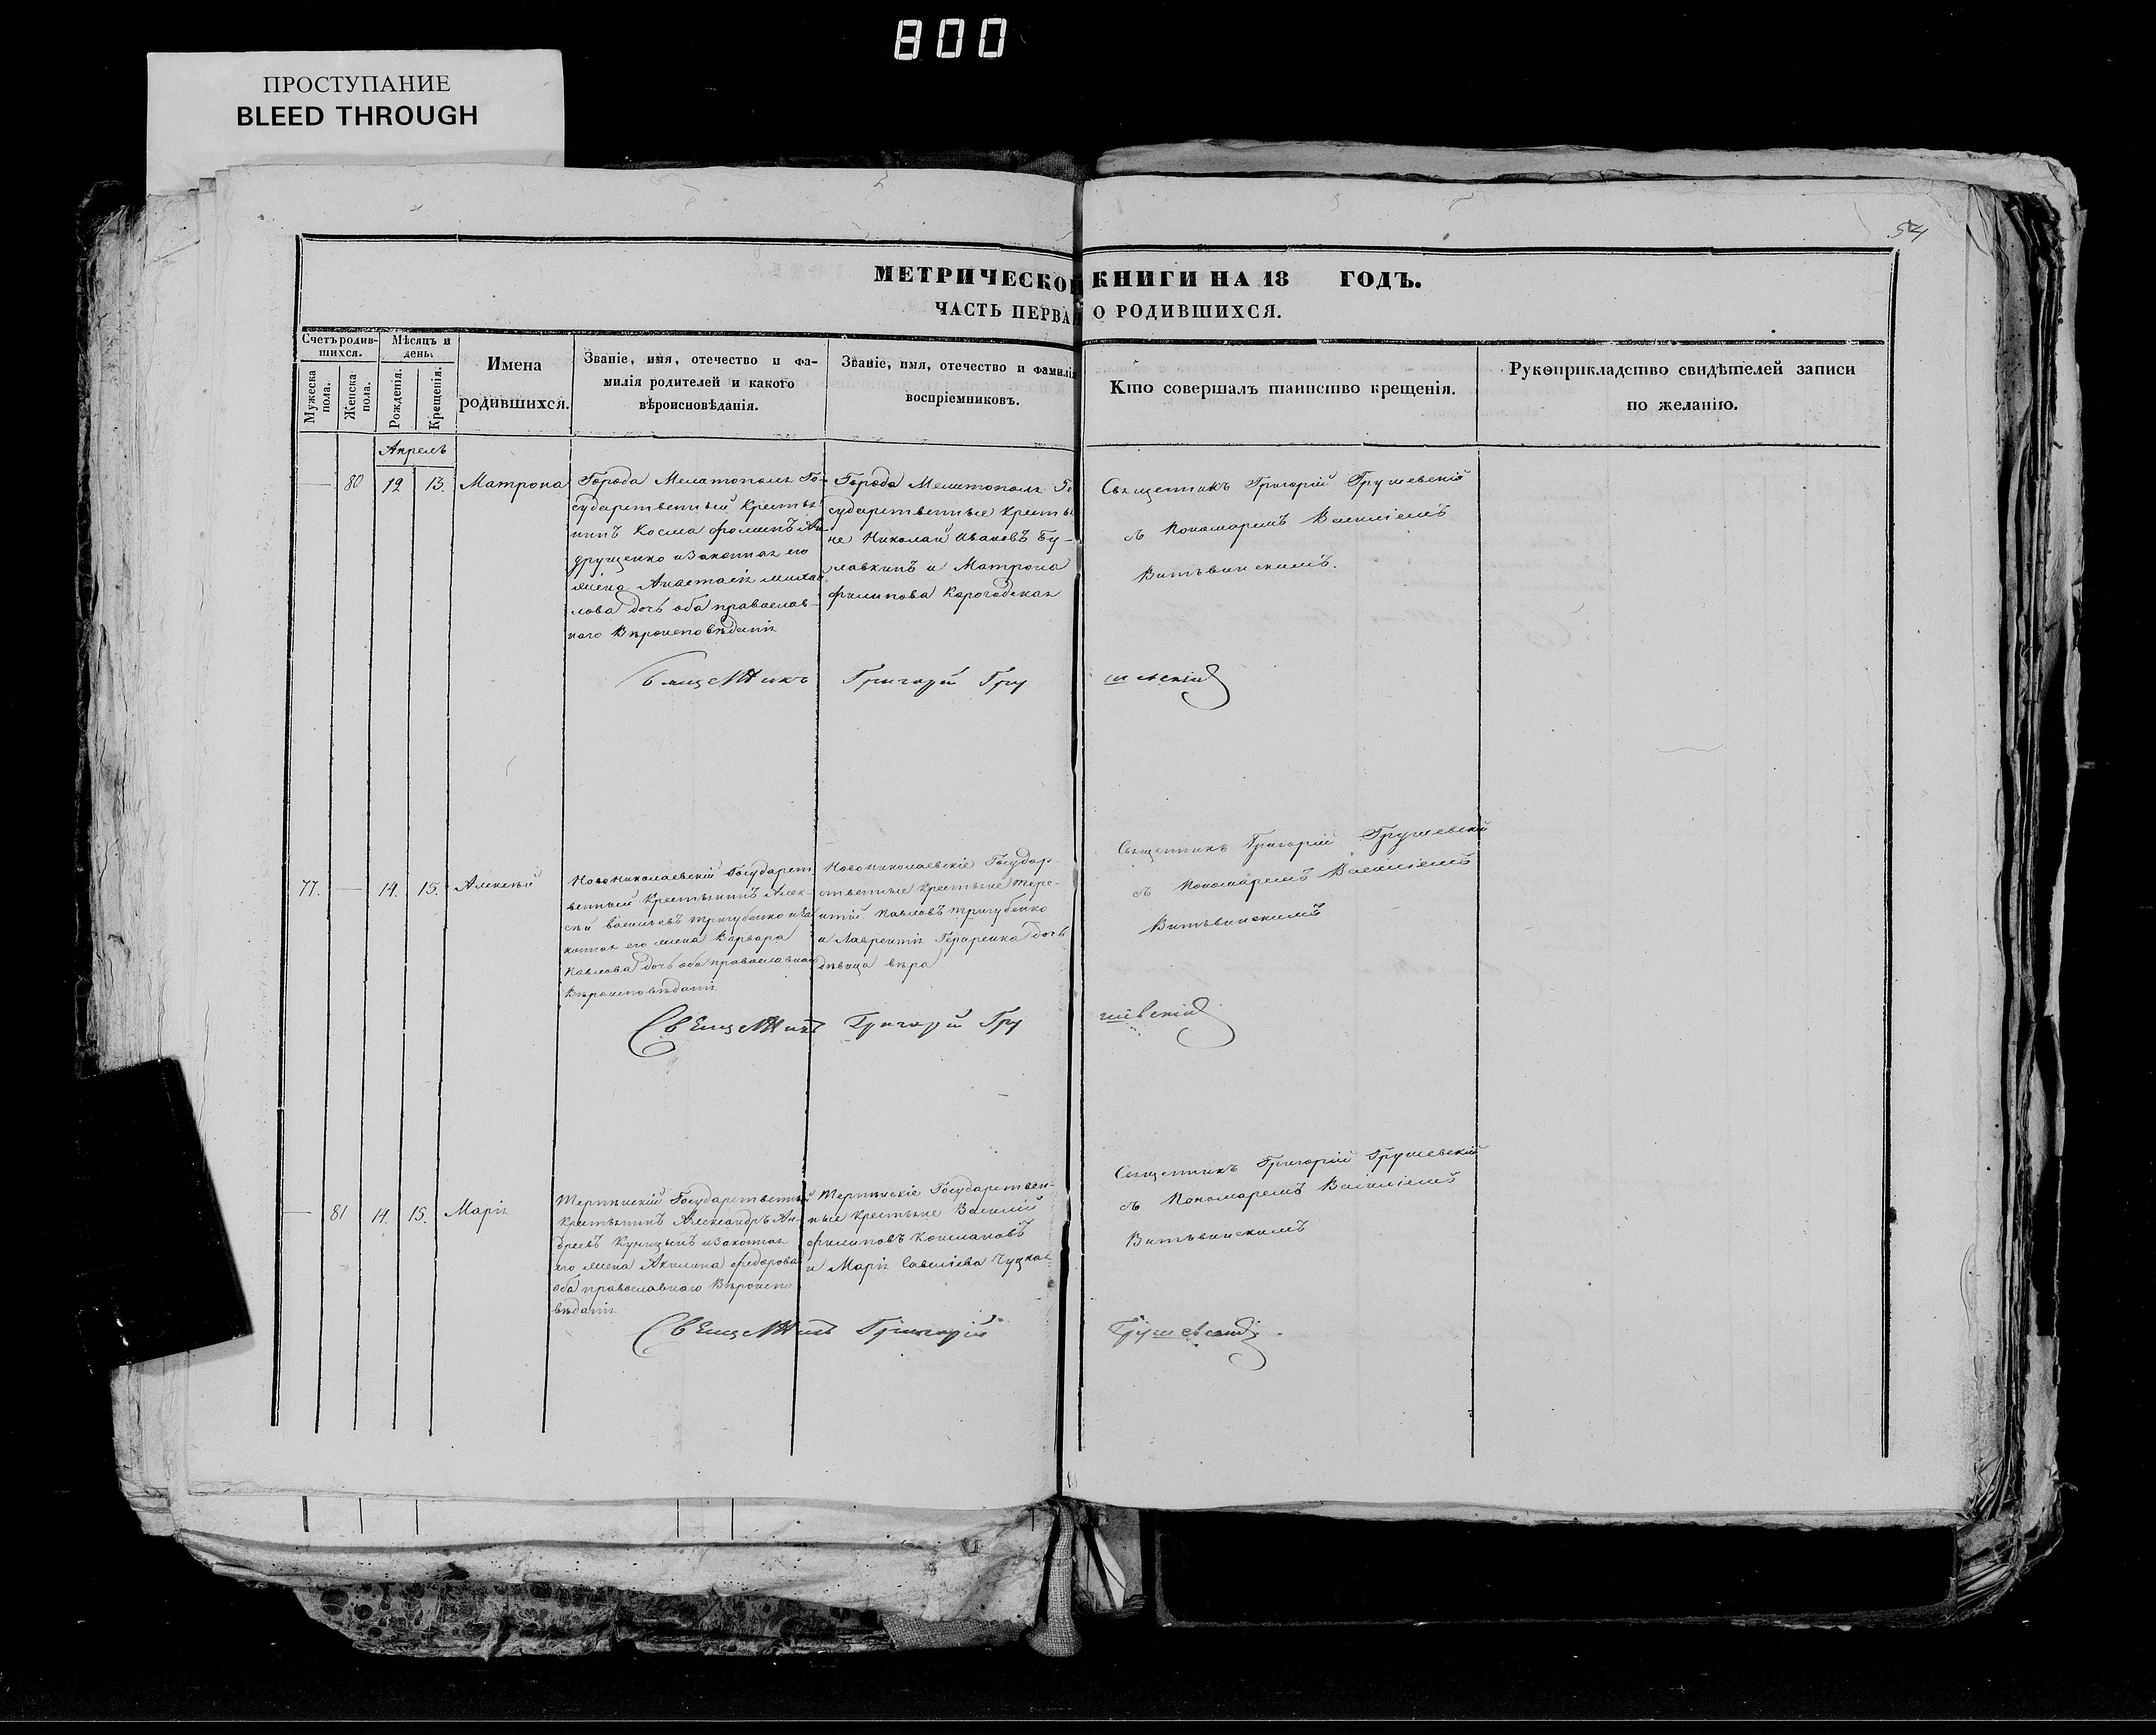 800
ПРОСТУПАНИЕ
BLEED THROUGH
54
МЕТРИЧЕСКОЙ КНИГИ НА 18 ГОДЪ.
ЧАСТЬ ПЕРВАЯ О РОДИВШИХСЯ.
Счетъ родив-
шихся.
Мужеска
пола.
Женска
пола.
Мѣсяцъ и
день.
Рожденія.
Крещенія.
Имена
родившихся.
Званіе, имя, отечество и фа-
милія родителей и какого
вѣроисповѣданія.
Званіе, имя, отечество и фамилія
воспріемниковъ.
Кто совершалъ таинство крещенія.
Рукоприкладство свидѣтелей записи
по желанію.
Апрель
80
12
13.
Матрона
Города Мелитополя Го-
сударственный Крестья
нинъ Косма Фоминъ Ан
друщенко и законная его
жена Анастасія Михай
лова дочь оба православ-
наго Вѣроисповѣданія
Города Мелитополя Го
сударственные Крестья
не Николай Ивановъ Бу-
лавкинъ и Матрона
Филипова Корогодская
Священникъ Григорій Грушевскій
съ Пономаремъ Василіемъ
Витвинскимъ.
Священникъ Григорій Гру
шевскій
77.
14.
15.
Алексѣй
Новониколаевскій Государст
венный Крестьянинъ Алек-
сѣй Васильевъ Тригубенко и за
конная его жена Варвара
Павлова дочь оба православнаго
Вѣроисповѣданія
Новониколаевскіе Государ-
ственные Крестьяне Тере-
нтій Павловъ Тригубенко
и Лаврентія дочь
дѣвица Вѣра
Священникъ Григорій Грушевскій
съ Пономаремъ Василіемъ
Витвинскимъ
Священникъ Григорій Гру
шевскій
81
14.
15.
Марія
Терпѣнскій Государственный
Крестьянинъ Александръ Ан-
дреевъ Куницынъ и законная
его жена Акилина Федорова
оба православнаго Вѣроиспо
вѣданія
Терпѣнскіе Государствен-
ные Крестьяне Василій
Филиповъ Колмаковъ
и Марія Савеліева
Священникъ Григорій Грушевскій
съ Пономаремъ Василіемъ
Витвинскимъ
Священникъ Григорій
Грушевскій.